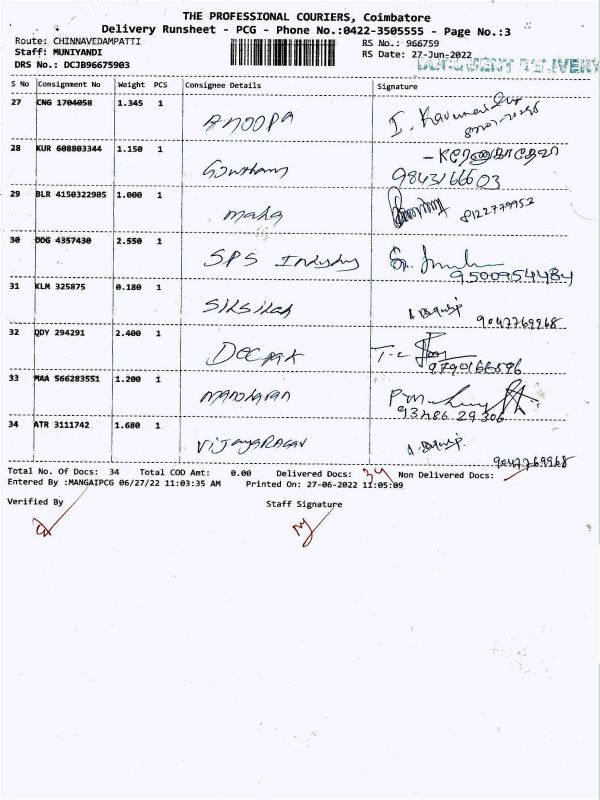 THE PROFESSIONAL COURIERS, Coimbatore
Delivery Runsheet - PCG - Phone No.:0422-3505555 - Page No.:3
Route: CHINNAVEDAMPATTI
RS No.: 966759
Staff: MUNIYANDI
RS Date: 27-Jun-2022
DRS No.: DCJB96675903
DOCUMENT DELIVERY
S No Consignment No Weight PCS Consignee Details Signature
27 CNG 1704058 1.345 1 ANOOPA
28 KUR 608803344 1.150 1 Gowtham
9843166503
29 BLR 4150322905 1.000 1 maha 8122779952
30 DDG 4357430 2.550 1 SPS Industry
9500954484
31 KLM 325875 0.180 1 SILSILAH
9047769968
32 QDY 294291 2.400 1 DEEPAK
9790166596
33 MAA 566283551 1.200 1 manoharan
93486 29306
34 ATR 3111742 1.680 1 VIJAYARAGAV
9047769968
Total No. Of Docs: 34 Total COD Amt: 0.00 Delivered Docs: 34 Non Delivered Docs:
Entered By :MANGAIPCG 06/27/22 11:03:35 AM Printed On: 27-06-2022 11:05:09
Verified By Staff Signature